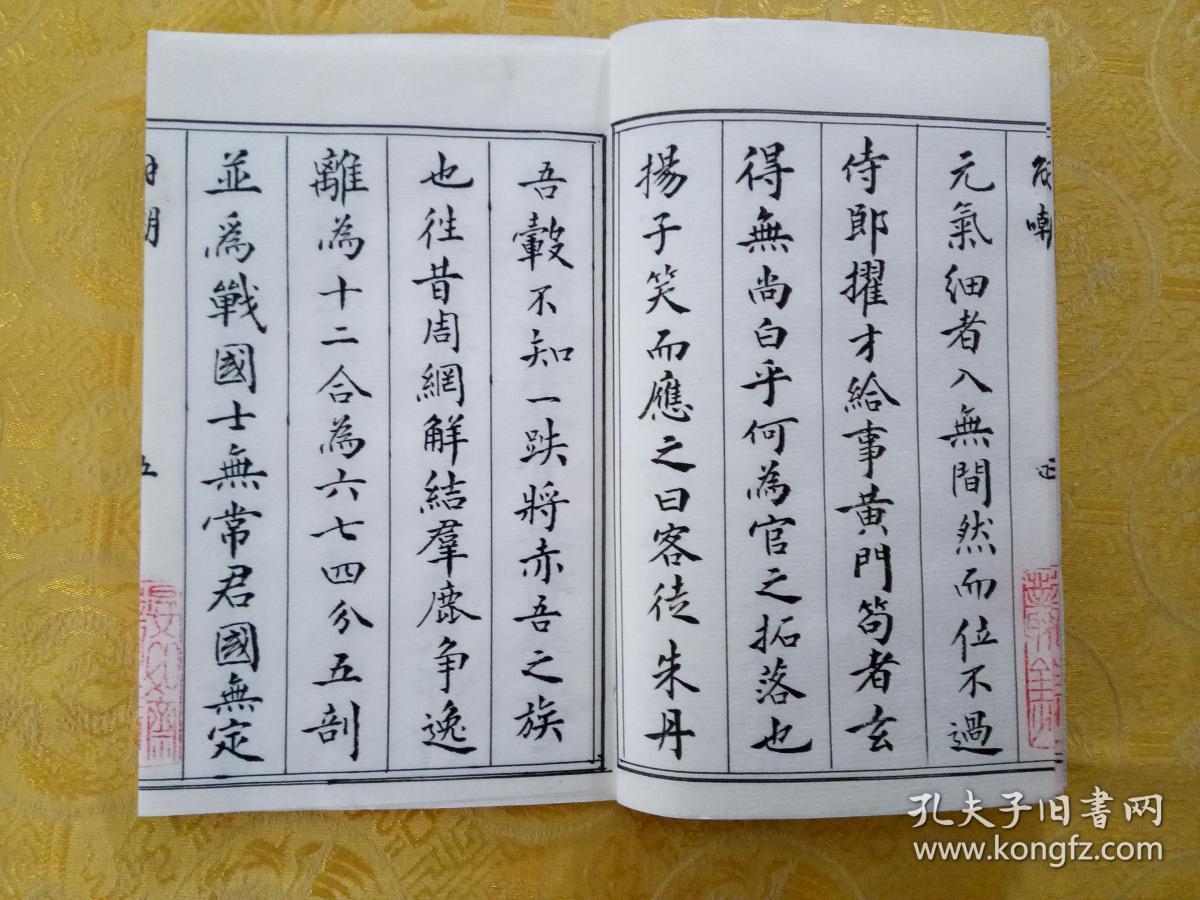 元氣細者入無間然而位不過
侍郎擢才給事黃門笱者玄
得無尚白乎何為官之拓落也
揚子笑而應之曰客徒朱丹
吾轂不知一跌將赤吾之族
也往昔周網解結羣鹿争逸
離為十二合為六七四分五剖
並爲戰國士無常君國無定
孔夫子旧書网
www.kongfz.com